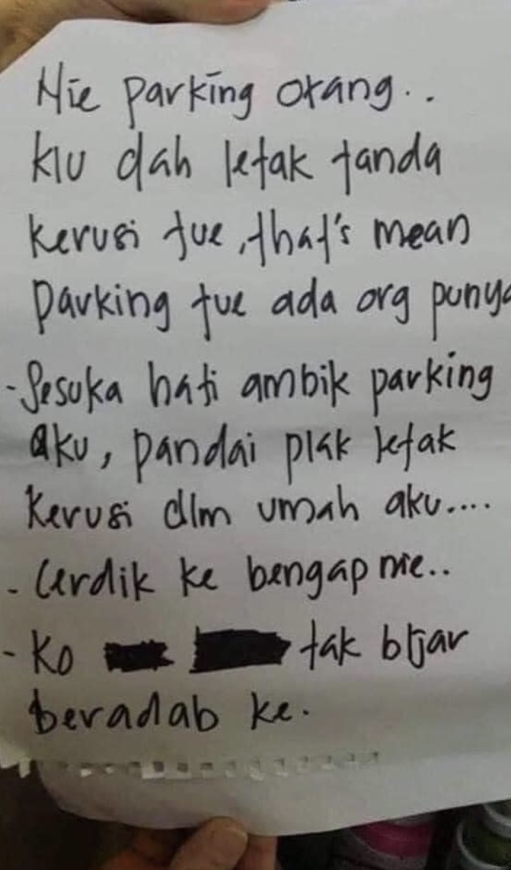 Nie parking orang..
klu dah letak tanda
kerusi tue, that's mean
parking tue ada org punya
- Sesuka hati ambik parking
aku, pandai plak letak
kerusi dlm umah aku....
- Cerdik ke bengap nie..
- Ko tak bljar
beradab ke.